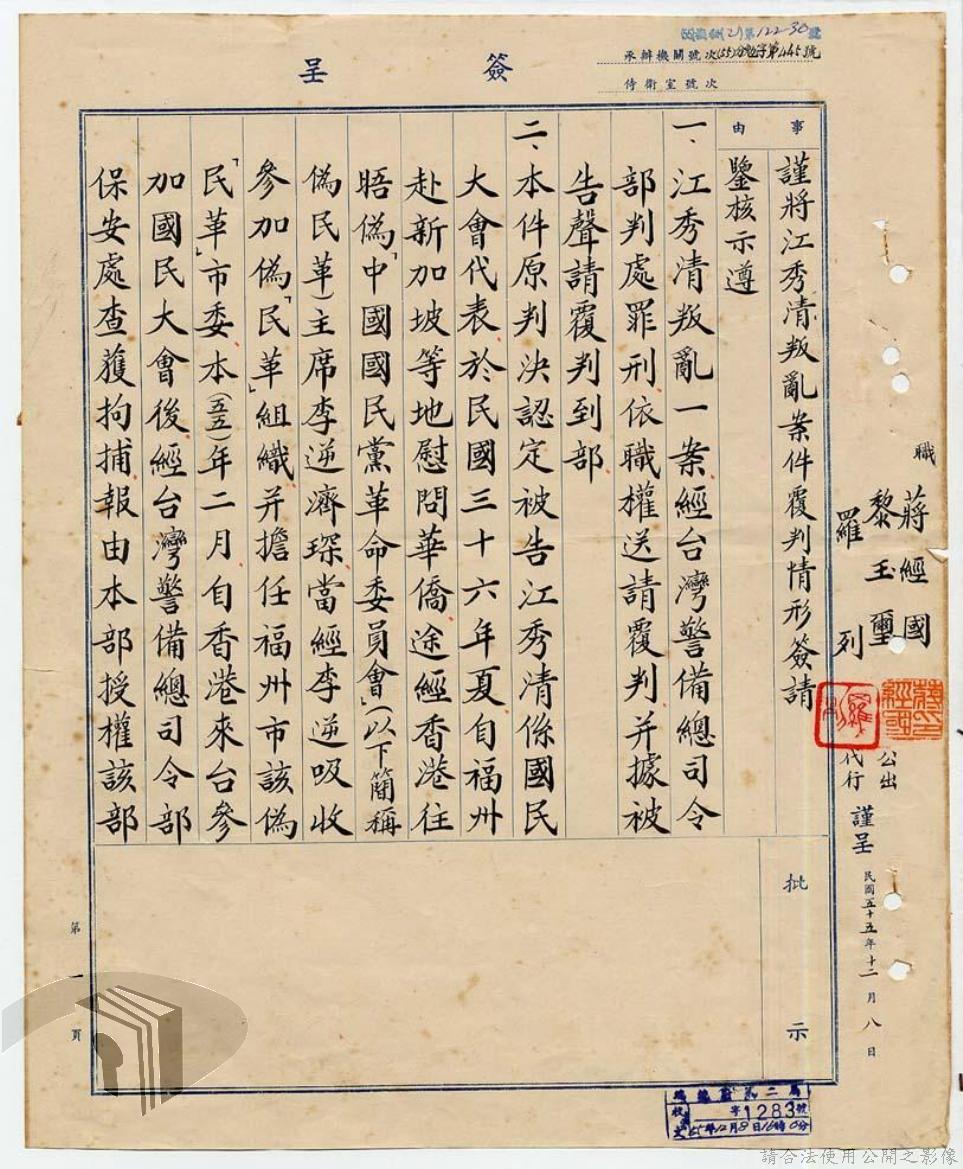 簽呈
承辦機關號次(55)勁需字第445號
侍衛室號次
事由
謹將江秀清叛亂案件覆判情形簽請
鑒核示遵
一、江秀清叛亂一案經台灣警備總司令
部判處罪刑依職權送請覆判并據被
告聲請覆判到部
二、本件原判決認定被告江秀清係國民
大會代表於民國三十六年夏自福州
赴新加坡等地慰問華僑途經香港往
晤偽「中國國民黨革命委員會」(以下簡稱
偽民革)主席李逆濟琛當經李逆吸收
參加偽「民革」組織并擔任福州市該偽
「民革」市委本(五五)年二月自香港來台參
加國民大會後經台灣警備總司令部
保安處查獲拘捕報由本部授權該部
批示
職
蔣經國 公出
黎玉璽
羅列 代行
謹呈
民國五十五年十二月八日
第一頁
收文 字1283號
55年12月8日16時0分
請合法使用公開之影像